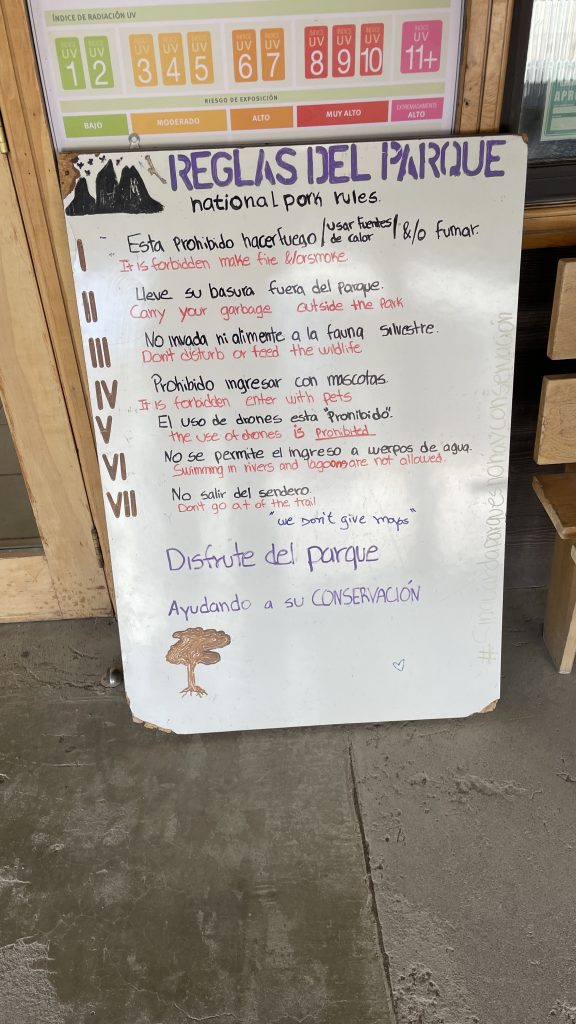 ÍNDICE DE RADIACIÓN UV
ÍNDICE UV 1 ÍNDICE UV 2 ÍNDICE UV 3 ÍNDICE UV 4 ÍNDICE UV 5 ÍNDICE UV 6 ÍNDICE UV 7 ÍNDICE UV 8 ÍNDICE UV 9 ÍNDICE UV 10 ÍNDICE UV 11+
RIESGO DE EXPOSICIÓN
BAJO MODERADO ALTO MUY ALTO EXTREMADAMENTE ALTO
REGLAS DEL PARQUE
national park rules.
I Esta prohibido hacer fuego / usar fuentes de calor / &/o fumar.
It is forbidden make fire &/or smoke.
II Lleve su basura fuera del parque.
Carry your garbage outside the park
III No invada ni alimente a la fauna silvestre.
Don't disturb or feed the wildlife
IV Prohibido ingresar con mascotas.
It is forbidden enter with pets
V El uso de drones esta "Prohibido".
the use of drones is Prohibited
VI No se permite el ingreso a werpos de agua.
Swimming in rivers and lagoons are not allowed.
VII No salir del sendero.
Don't go at of the trail
"we Don't give maps"
Disfrute del parque
Ayudando a su CONSERVACIÓN
#Singuardaparquesnohayconservación